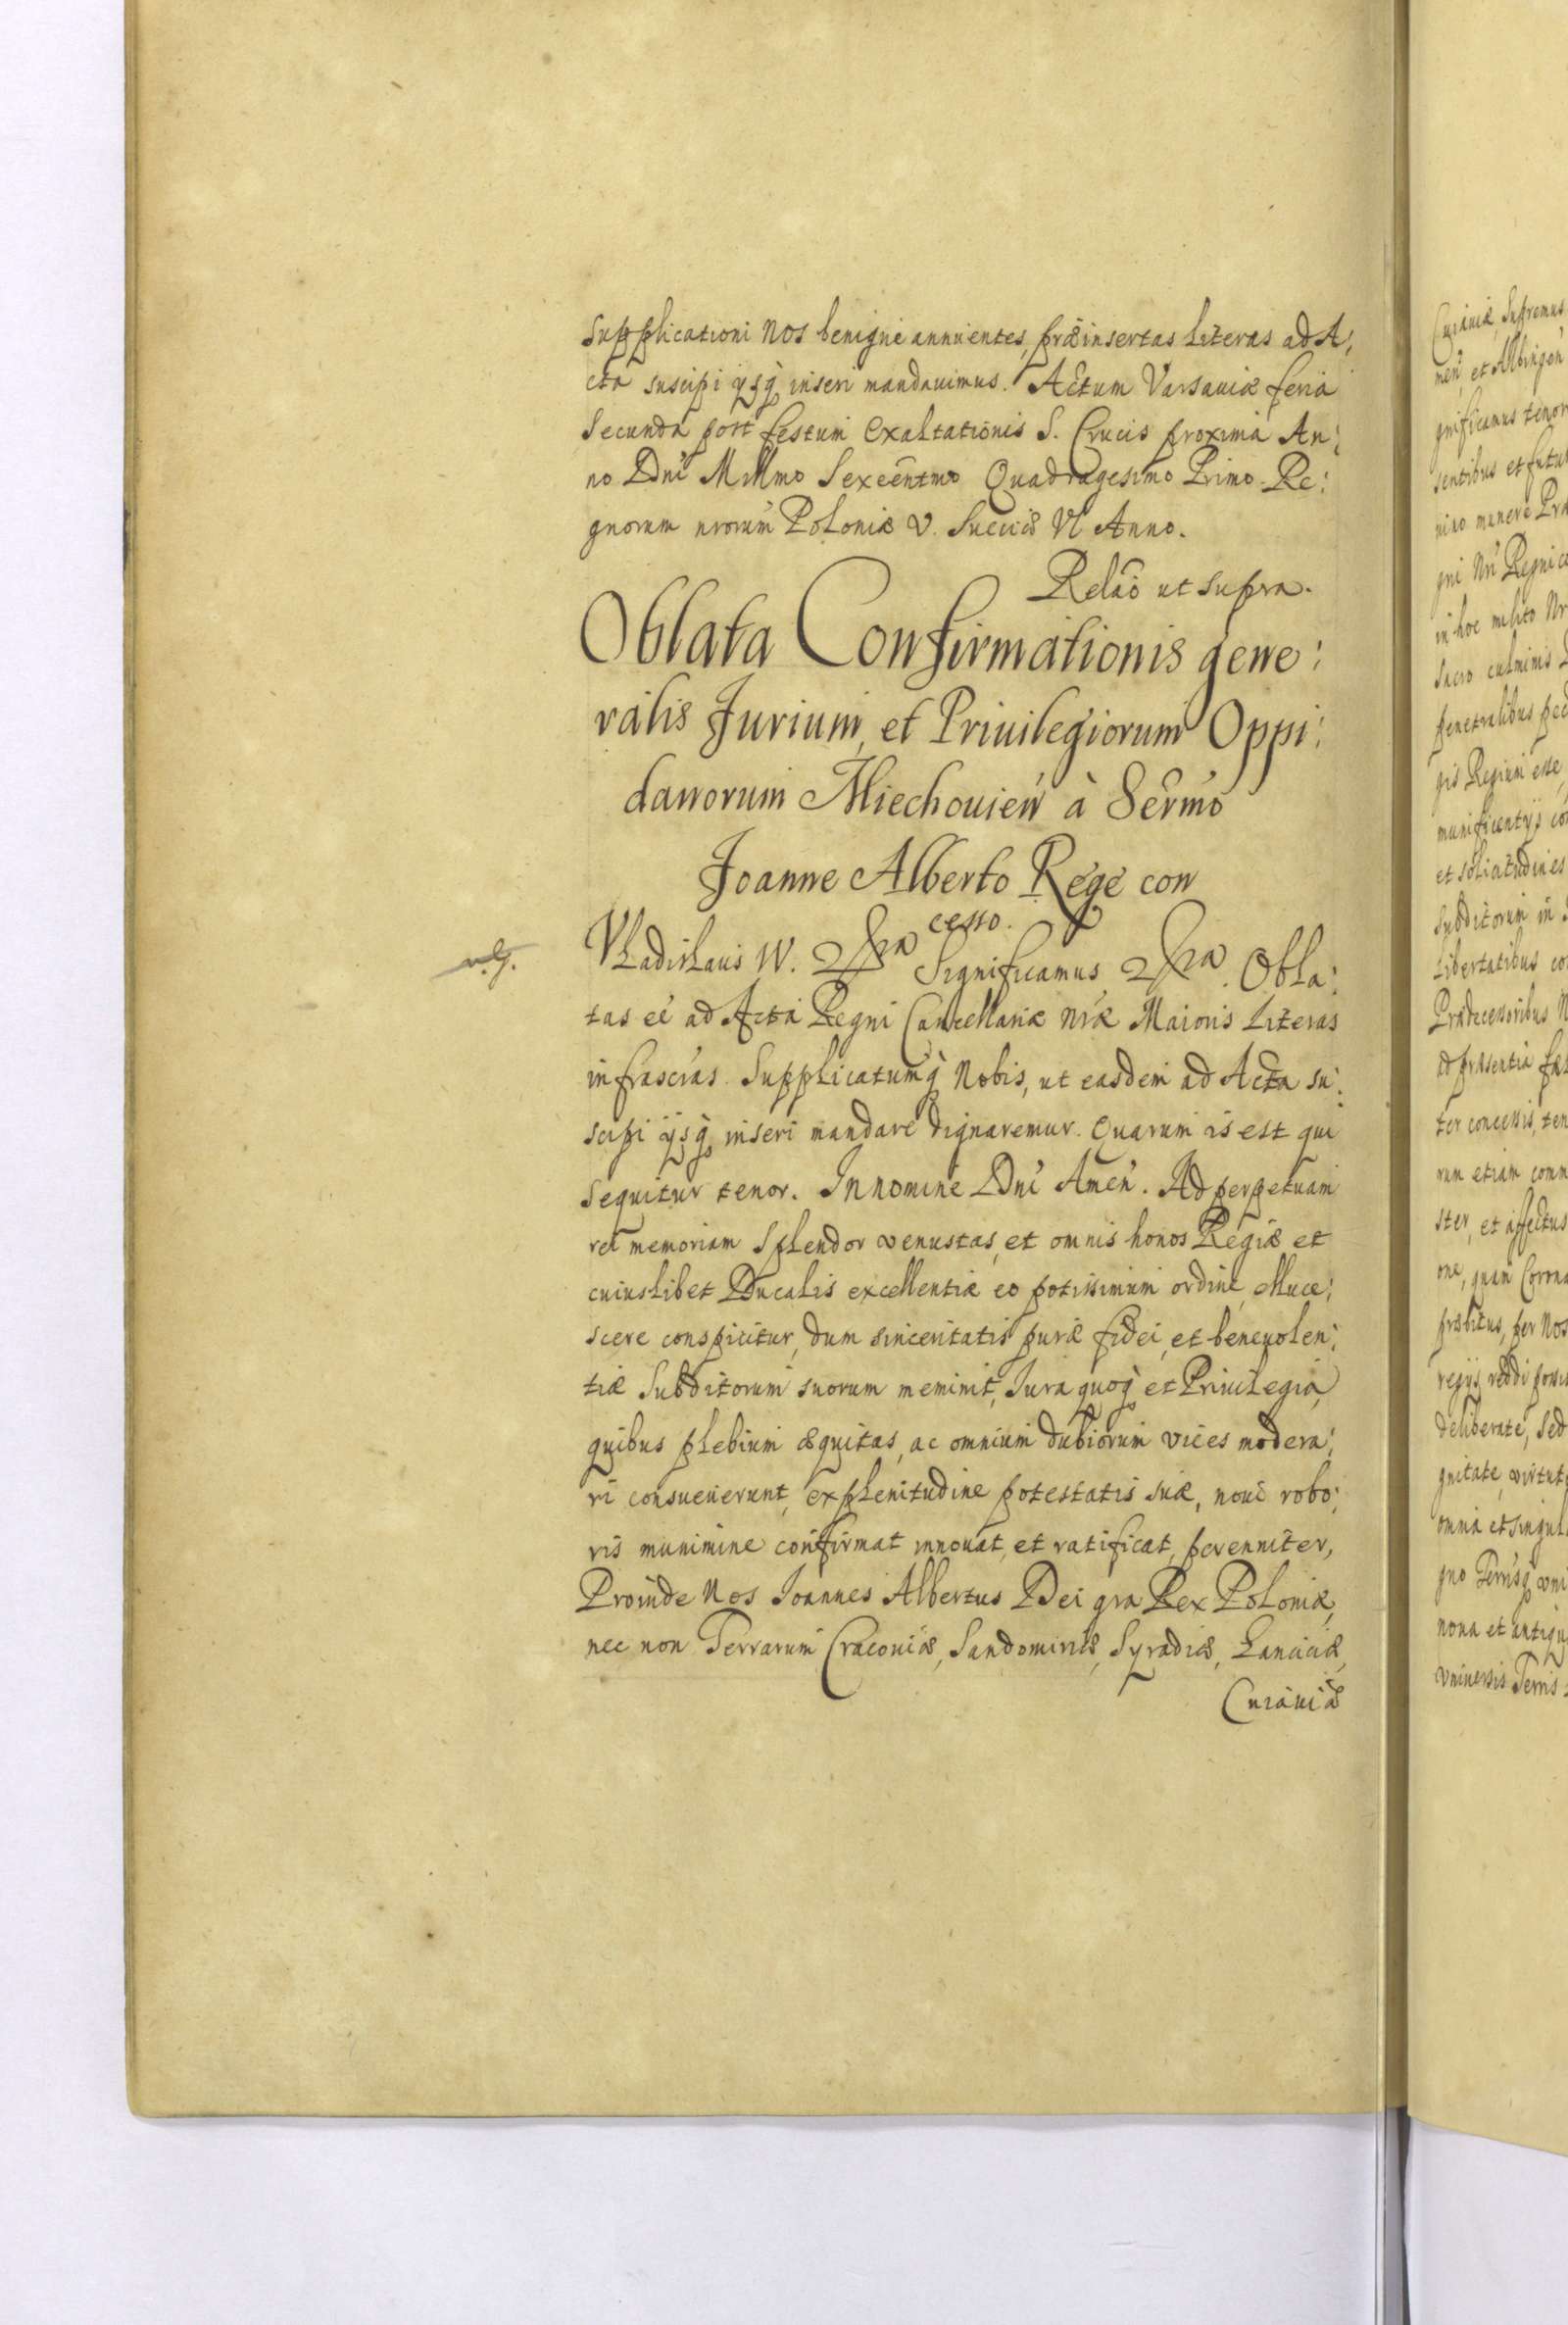 Supplicationi Nos benigne annuentes, præinsertas Literas ad A;
cta suscipi ysq̃ inseri mandauimus. Actum Varsauiæ feria
Secunda post festum Exaltationis S. Crucis proxima An;
no Dni Millmo Sexcentmo Quadragesimo Primo. Re:
gnorum nrorum Poloniæ V. Sueciæ VI Anno.
Relão ut supra.
Oblata Confirmationis gene:
ralis Jurium, et Priuilegiorum Oppi:
danorum Miechouień à Sermo
Joanne Alberto Rege con
cesso.
Vladislaus IV. Significamus Obla:
tas eé ad Acta Regni Cancellariæ nræ Maioris Literas
infrascras. Supplicatumq̃ Nobis, ut easdem ad Acta su:
scipi ysq̃ inseri mandare dignaremur. Quarum is est qui
sequitur tenor. In nomine Dni Amen. Ad perpetuam
rei memoriam Splendor venustas, et omnis honos Regiæ et
cuiuslibet Ducalis excellentiæ eo potissimum ordine elluce;
scere conspicitur, dum sinceritatis puræ fidei, et beneuolen;
tiæ Subditorum suorum meminit, Iura quoq̃ et Priuilegia,
quibus plebium æquitas, ac omnium dubiorum vices modera;
ri consueuerunt, ex plenitudine potestatis suæ, noui robo;
ris munimine confirmat innouat, et ratificat, perenniter,
Proinde Nos Ioannes Albertus Dei gra Rex Poloniæ,
nec non Terrarum Cracouiæ, Sandomiriæ, Syradiæ, Lanciciæ,
Cuiauiæ
Cuiauiæ, Supremus
men, et Elbingen
gnificamus tenor
sentibus et futu
gni Nri Regnic
in hoc
Sacro culminis
penetralibus
gis Regium esse,
munificentijs co
et solicitudines
Subditorum in
Libertatibus co
Prædecessoribus N
ad præsentia
ter concessis, ten
rum etiam comm
ster, et affectus
one, quam Corona
præbitus, per Nos
regijs reddi
deliberate, Sed
gnitate, virtut
omnia et singul
gno Terrisq̃
nona et antiqu
vniuersis Terris